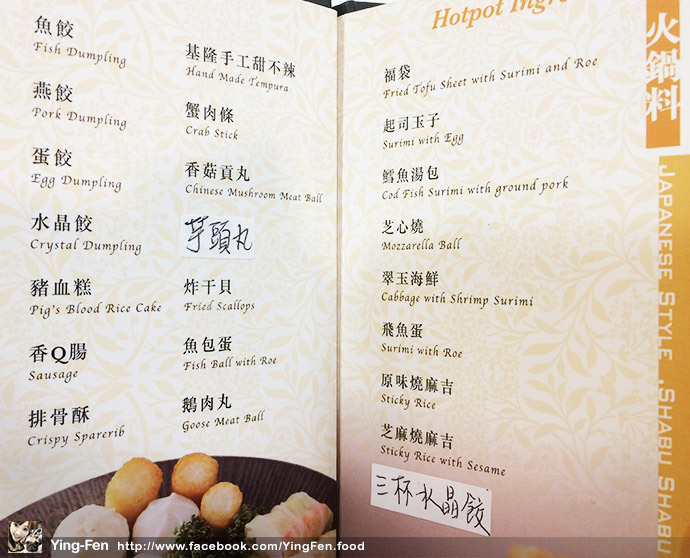 魚餃
Fish Dumpling
燕餃
Pork Dumpling
蛋餃
Egg Dumpling
水晶餃
Crystal Dumpling
豬血糕
Pig's Blood Rice Cake
香Q腸
Sausage
排骨酥
Crispy Sparerib
基隆手工甜不辣
Hand Made Tempura
蟹肉條
Crab Stick
香菇貢丸
Chinese Mushroom Meat Ball
芋頭丸
炸干貝
Fried Scallops
魚包蛋
Fish Ball with Roe
鵝肉丸
Goose Meat Ball
Hotpot
福袋
Fried Tofu Sheet with Surimi and Roe
起司玉子
Surimi with Egg
鱈魚湯包
Cod Fish Surimi with ground pork
芝心燒
Mozzarella Ball
翠玉海鮮
Cabbage with Shrimp Surimi
飛魚蛋
Surimi with Roe
原味燒麻吉
Sticky Rice
芝麻燒麻吉
Sticky Rice with Sesame
三杯水晶餃
火鍋料
Japanese Style , Shabu Shabu
Ying-Fen http://www.facebook.com/YingFen.food